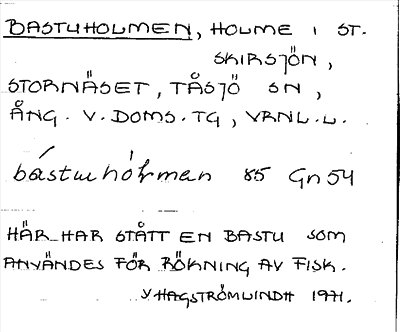 BASTUHOLMEN, HOLME I ST.
SKIRSJÖN,
STORNÄSET, TÅSJÖ SN,
ÅNG. V. DOMS. TG, VRNL. L.
bástuhólmen 85 Gn54
HÄR HAR STÅTT EN BASTU SOM
ANVÄNDES FÖR RÖKNING AV FISK.
Y HAGSTRÖM LINDH 1971.